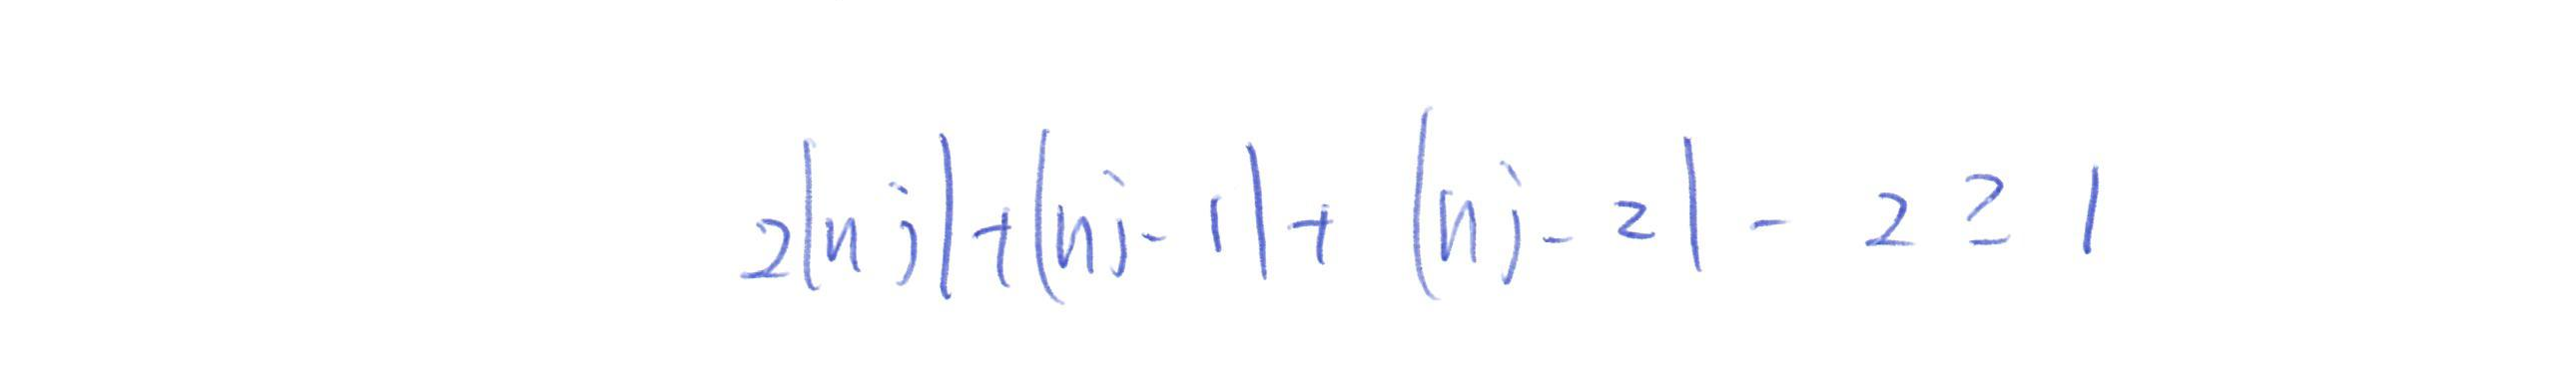 2|nj|+|nj-1|+|nj-2|-2≥1